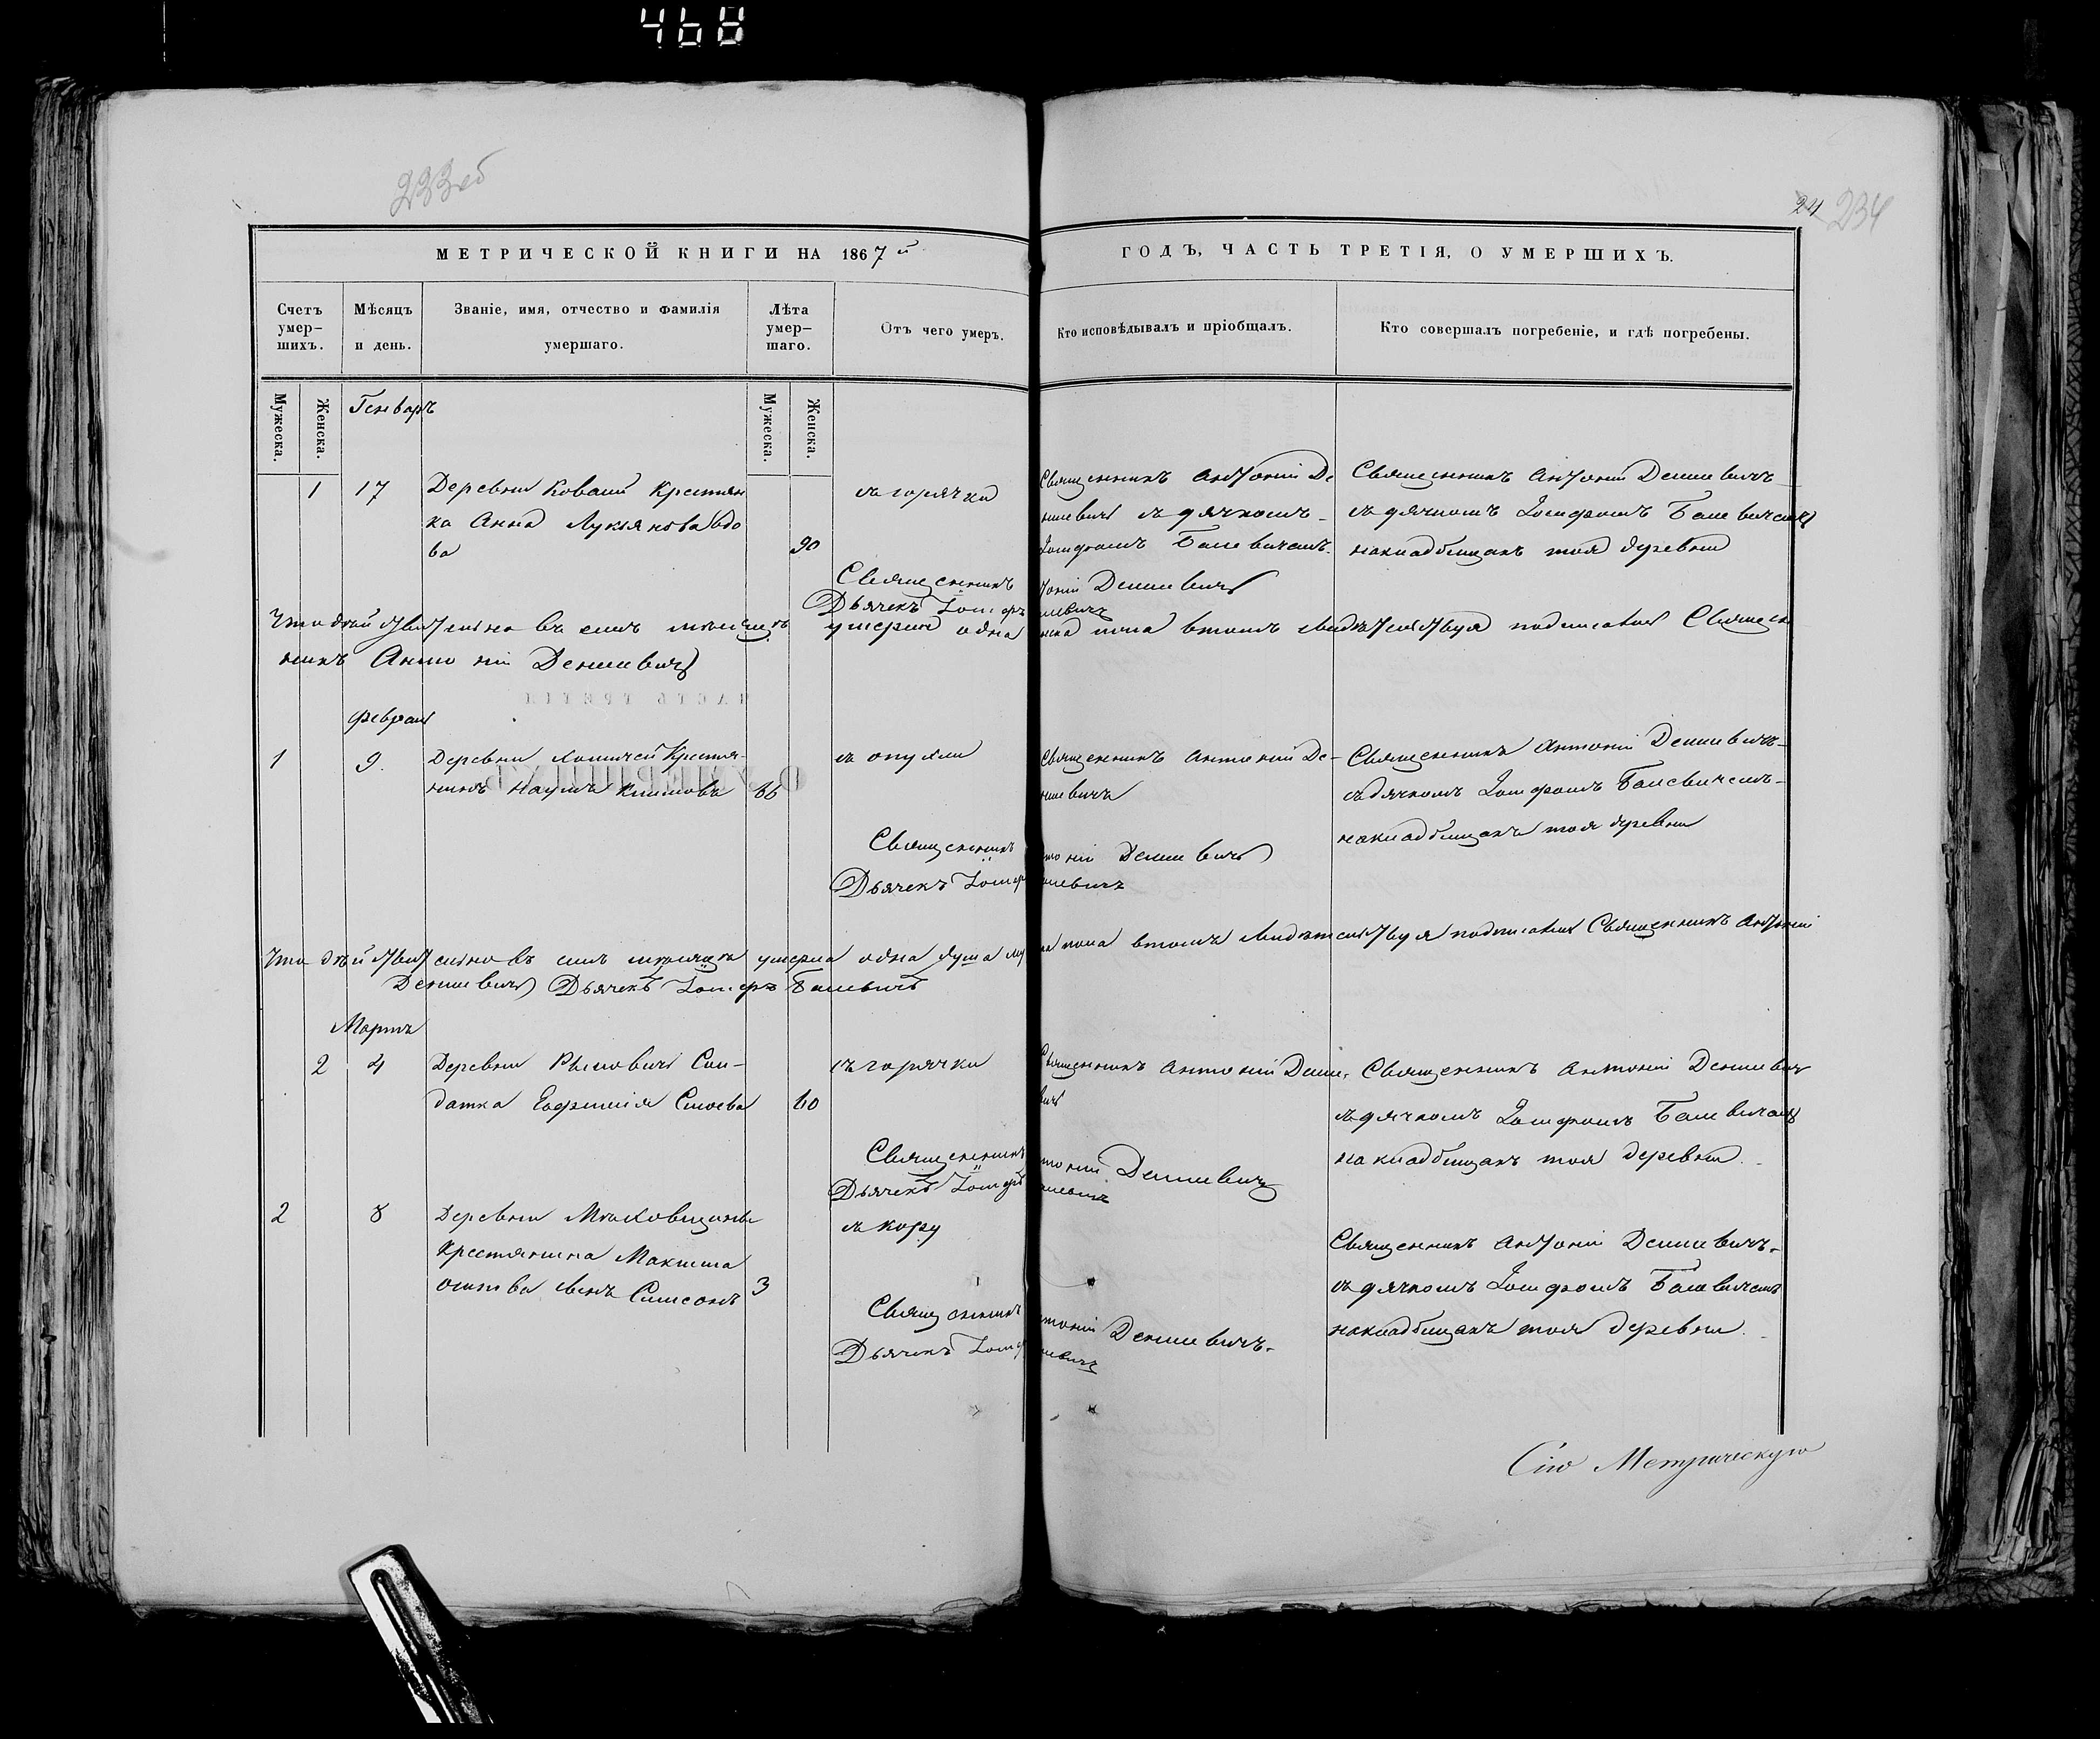 468
233об
24 234
МЕТРИЧЕСКОЙ КНИГИ НА 1867й
ГОДЪ, ЧАСТЬ ТРЕТІЯ, О УМЕРШИХЪ.
Счетъ умер-шихъ.
Мѣсяцъ и день.
Званіе, имя, отчество и фамилія умершаго.
Лѣта умер-шаго.
Отъ чего умеръ.
Кто исповѣдывалъ и пріобщалъ.
Кто совершалъ погребеніе, и гдѣ погребены.
Мужеска.
Женска.
Генварь
Мужеска.
Женска.
1 17 Деревни Ковали Крестян
ка Анна Лукіянова вдо
ва
90
съ горячки
Священникъ Антоній Де
нисевичъ съ дячкомъ
Іосифомъ Балевичемъ.
Священникъ Антоній Денисевичъ
съ дячкомъ Іосифомъ Балевичемъ
накладбищахъ тоя деревни
Священникъ тоній Денисевичъ
Дьячекъ Іосифъ левичъ
Что дѣйствительно въ семъ мѣсяцѣ умерла одна пола втомъ свидѣтельствуя подписался Священ
никъ Антоній Денисевичъ
Февраль
1 9. Деревни Крестя-
нинъ Наумъ Климовъ 66
съ опухли
Священникъ Антоній Де-
нисевичъ
Священникъ Антоній Денисевичъ
съдячкомъ Іосифомъ Балевичемъ
накладбищахъ тоя деревни
Священникъ тоній Денисевичъ
Дьячекъ Іосиф левичъ
Что дѣйствительно въ семъ мѣсяцѣ умерла одна душа му пола втомъ свидѣтельствуя подписался Священникъ Антоній
Денисевичъ Дьячекъ Іосифъ Балевичъ
Мартъ
2 4 Деревни Сол-
датка Евфимія 60
съ горячки
Священникъ Антоній Дени
вичъ
Священникъ Антоній Денисевич
съ дячкомъ Іосифомъ Балевичемъ
на кладбищахъ тоя деревни.
Священникъ тоній Денисевичъ
Дьячекъ Іосифъ левичъ
2 8 Деревни
Крестянина Максима
сынъ Симеонъ 3
съ кору
Священникъ Антоній Денисевичъ.
съ дячкомъ Іосифомъ Балевичемъ
накладбищахъ тоя деревни.
Священникъ тоній Денисевичъ.
Дьячекъ Іосиф левичъ
Сію Метрическую